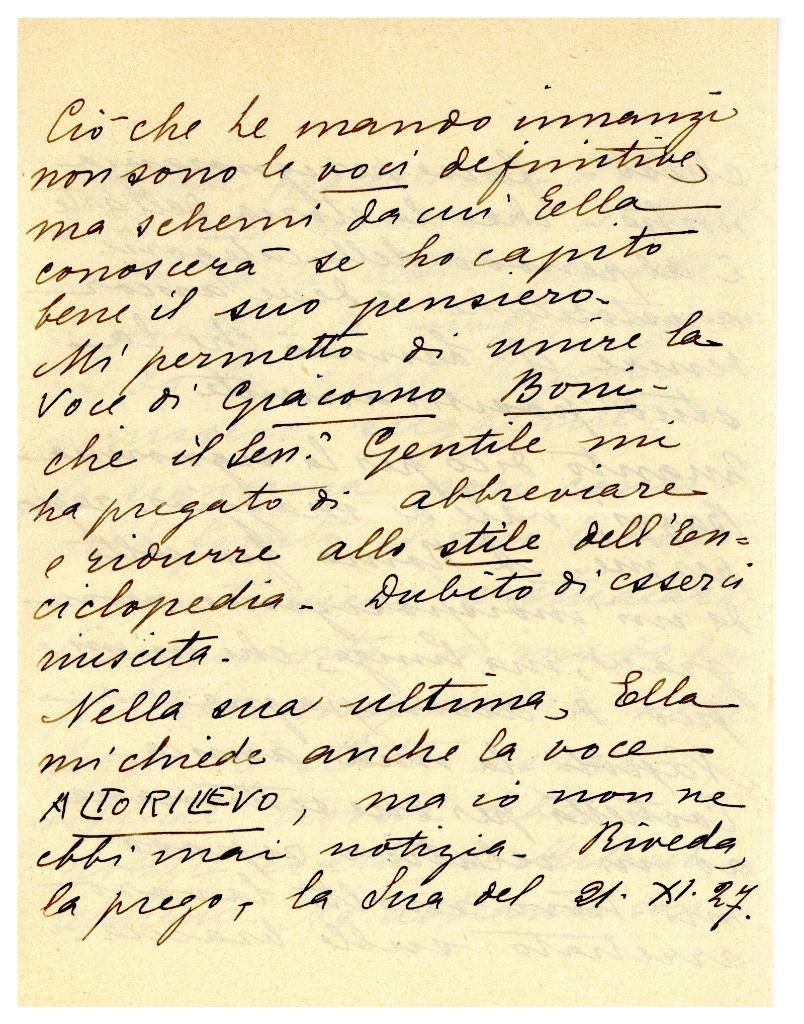 Ciò che Le mando innanzi
non sono le voci definitive,
ma schemi da cui Ella
conoscerà se ho capito
bene il suo pensiero.
Mi permetto di unire la
voce di Giacomo Boni-
che il Sen.e Gentile mi
ha pregato di abbreviare
e ridurre allo stile dell'En=
ciclopedia. Dubito di esserci
riuscita.
Nella sua ultima, Ella
mi chiede anche la voce
ALTORILIEVO, ma io non ne
ebbi mai notizia. Riveda,
la prego, la Sua del 21. XI. 27.